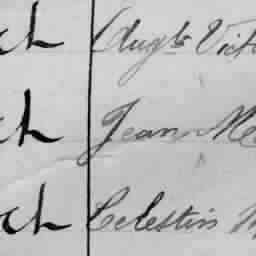 ch Augte Vict
ch Jean Me
ch Celestin